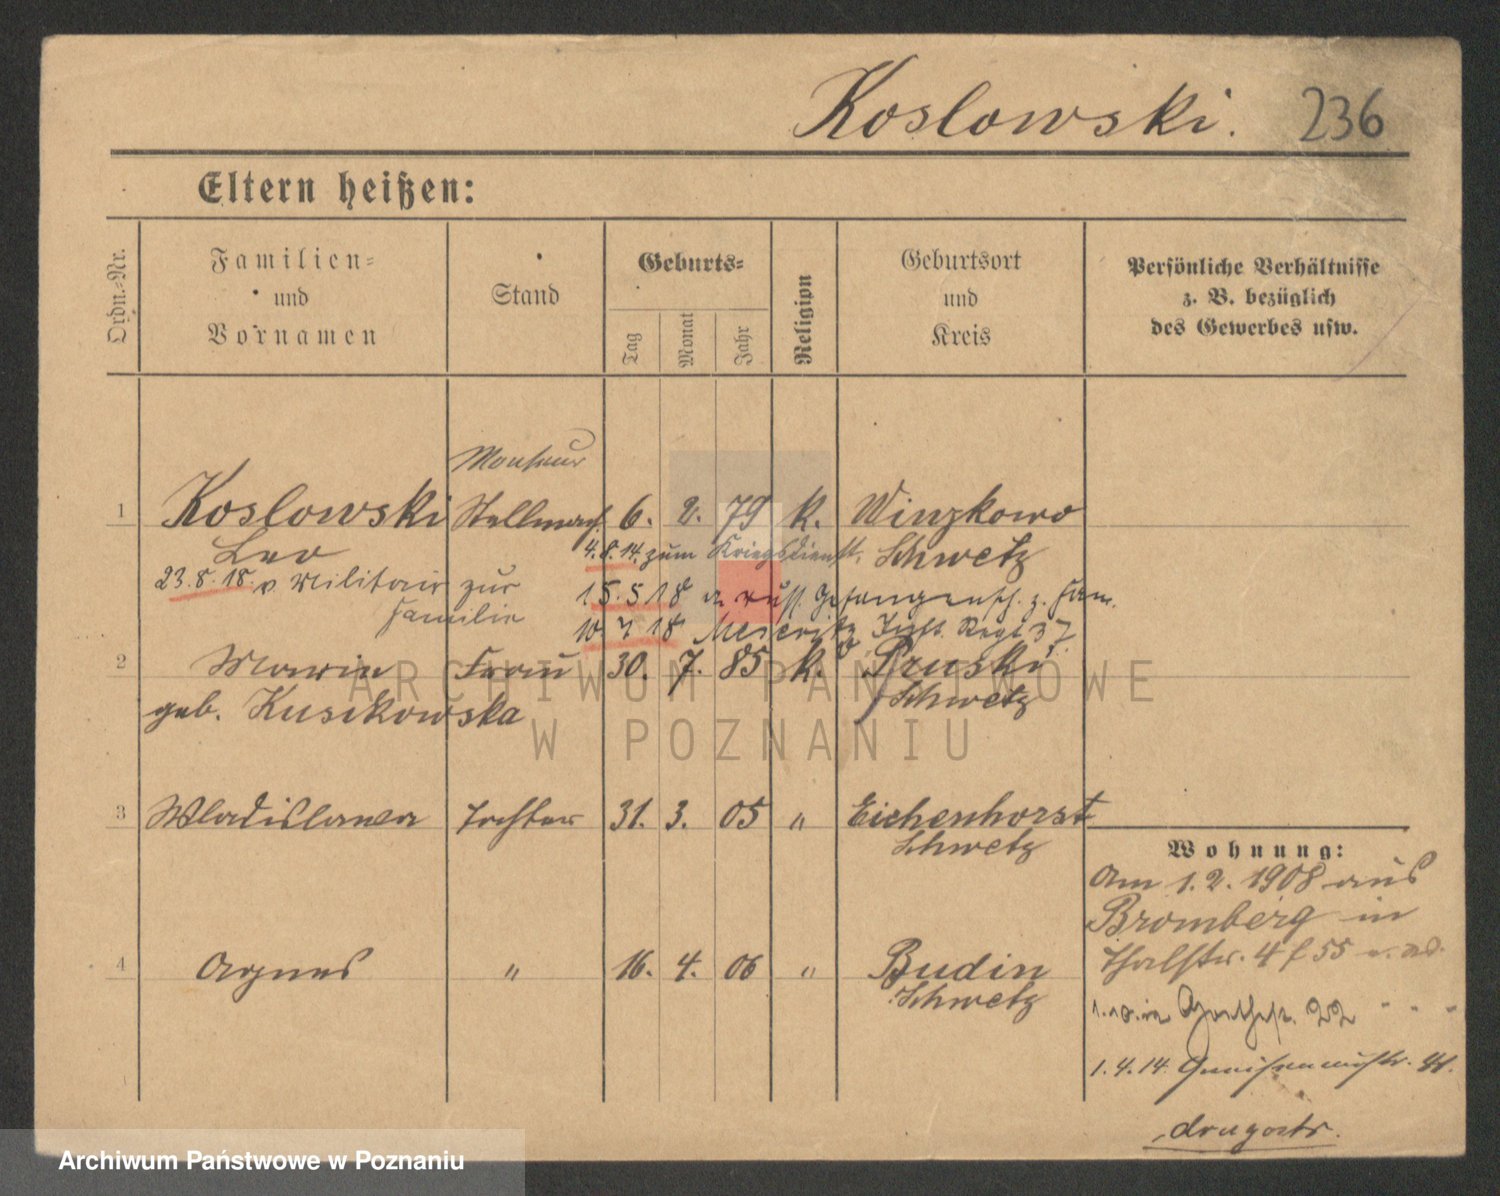 Koslowski. 236
Eltern heißen:
Ordn.-Nr.
Familien-
und
Vornamen
Stand
Geburts-
Tag
Monat
Jahr
Religion
Geburtsort
und
Kreis
Persönliche Verhältnisse
z. B. bezüglich
des Gewerbes usw.
Monteur
1 Koslowski Stellmach. 6. 2. 79 k. Winzkowo
Leo 4.8.14. zum Kriegsdienst. Schwetz
23.8.18. v Militair zur 15.5.18 a. russ. Gefangensch. z. Fam.
Familie 10 7 18 Meseritz Inft. Regt 37
2 Marie Frau 30. 7. 85 k. Pruski
geb. Kusikowska Schwetz
3 Wladislawa Tochter 31. 3. 05 " Eichenhorst
Schwetz
4 Agnes " 16. 4. 06 " Budin
Schwetz
Wohnung:
Am 1.2.1908 aus
Bromberg in
Thalstr. 4 f 55
1.10. 22 " " "
1.4.14. Gneisenaustr.
ARCHIWUM PAŃSTWOWE
W POZNANIU
Archiwum Państwowe w Poznaniu